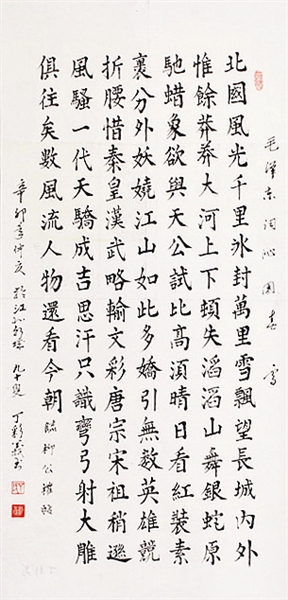 毛澤東詞沁園春 雪
北國風光千里氷封萬里雪飄望長城内外
惟餘莽莽大河上下頓失滔滔山舞銀蛇原
馳蜡象欲與天公試比高須晴日看紅裝素
裹分外妖嬈江山如此多嬌引無數英雄競
折腰惜秦皇漢武略輸文彩唐宗宋祖稍遜
風騷一代天驕成吉思汗只識彎弓射大雕
俱往矣數風流人物還看今朝 臨柳公權帖
辛卯年仲夏 於江 叟 丁彩義書